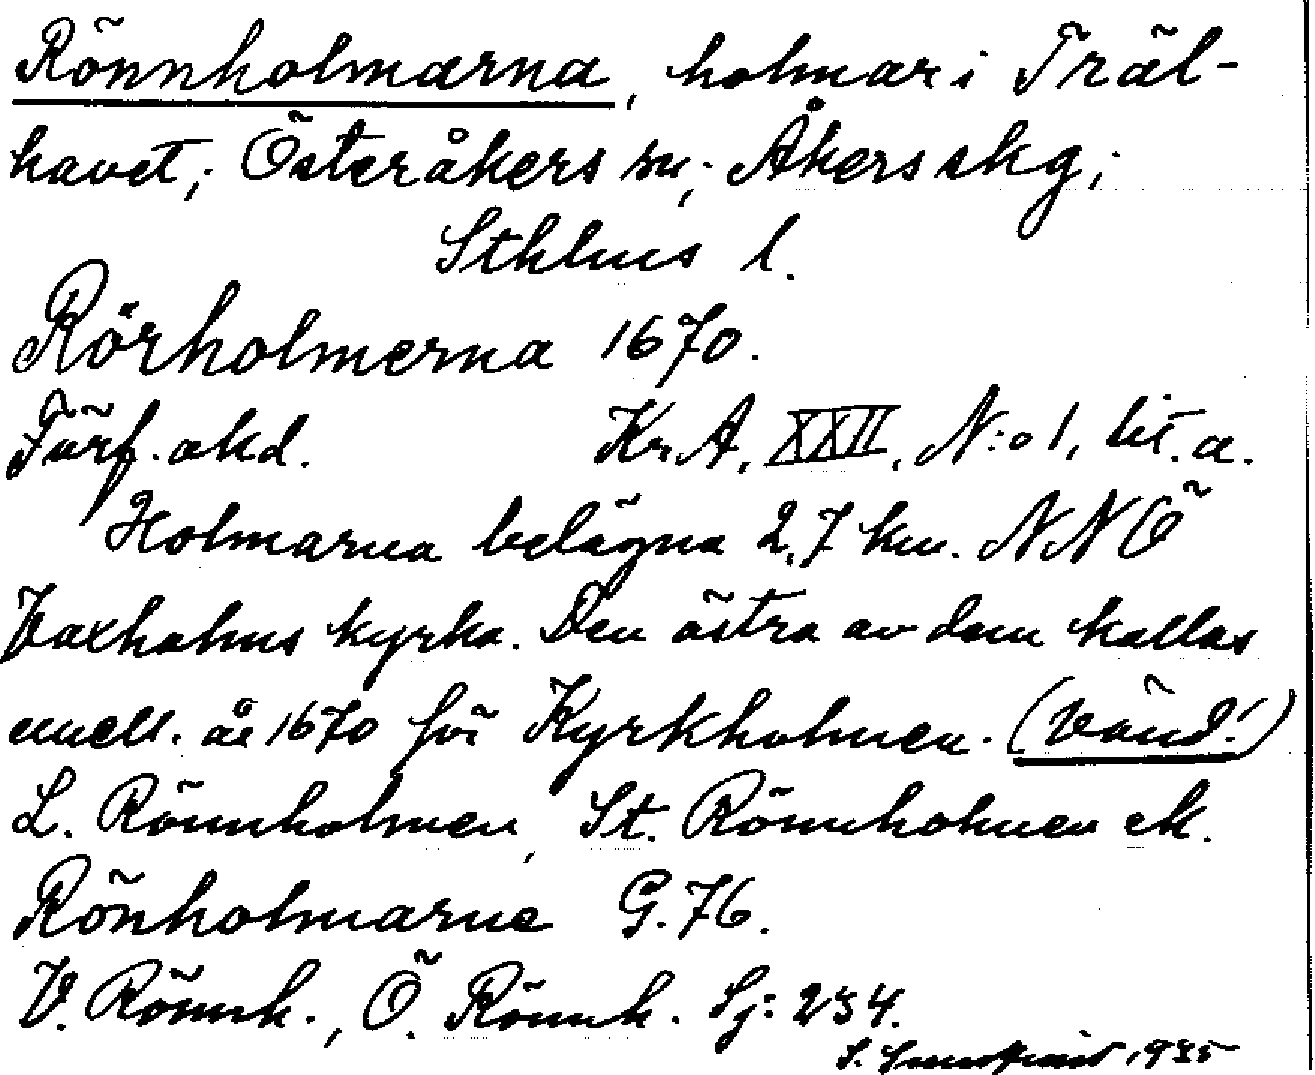 Rönnholmarna, holmar i Träl-
havet, Österåkers sn, Åkers skg,
Sthlms l.
Rörholmerna 1670.
Förf. okd. Kr. A. XXII, N:o 1, lit. a.
Holmarna belägna 2,7 km. NNÖ
Vaxholms kyrka. Den östra av dem kallas
emell. år 1670 för Kyrkholmen. (Vänd!)
L. Rönnholmen, St. Rönnholmen ek.
Rönholmarne G. 76.
V. Rönnh., Ö. Rönnh. Sj: 234.
S. 1935